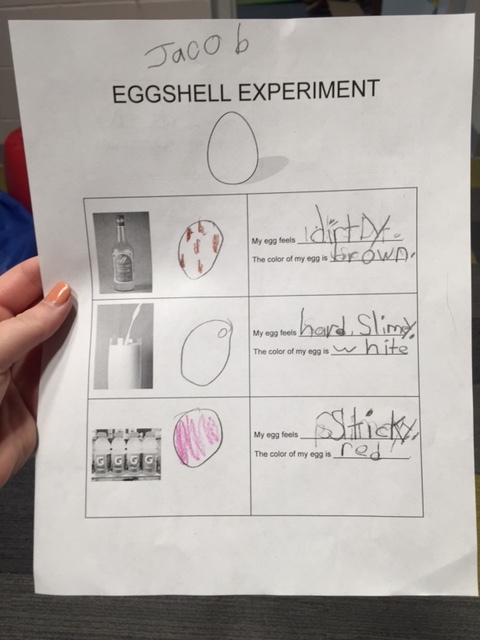 Jacob
EGGSHELL EXPERIMENT
My egg feels dirty.
The color of my egg is brown.
My egg feels hard, Slimy.
The color of my egg is white
My egg feels Sticky.
The color of my egg is red
G G G G